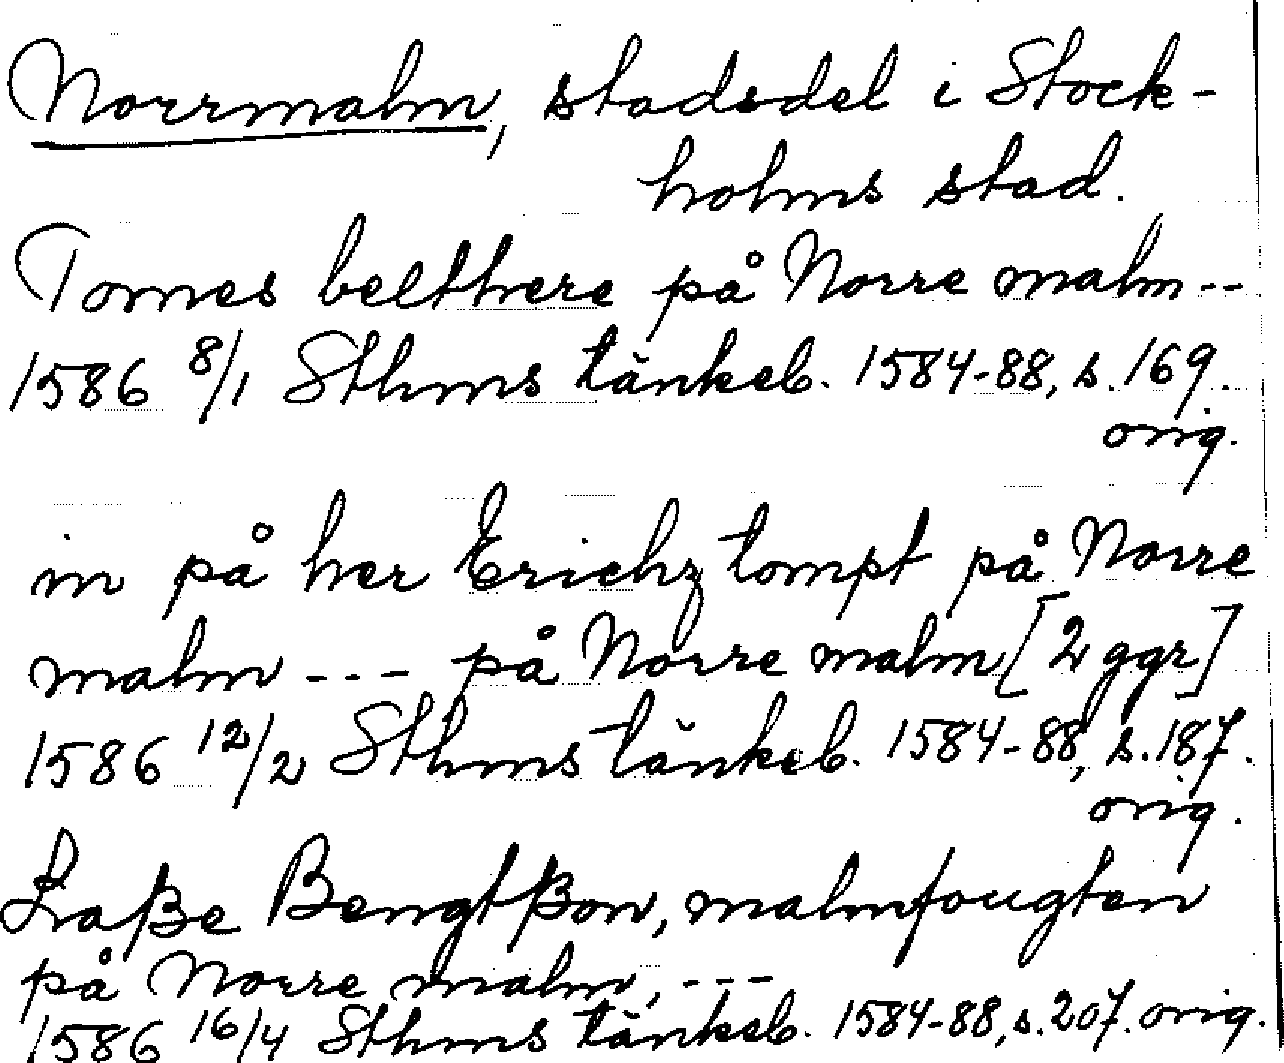 Norrmalm, stadsdel i Stock-
holms stad.
Tomes belthere på Norre malm--
1586 8/1 Sthms tänkeb. 1584-88, s. 169.
orig.
in på her Erichz tompt på Norre
malm --- på Norre malm [2 ggr]
1586 12/2 Sthms tänkeb. 1584-88, s. 187.
orig.
Laße Bengtßon, malmfougten
på Norre malm, ---
1586 16/4 Sthms tänkeb. 1584-88, s. 207. orig.